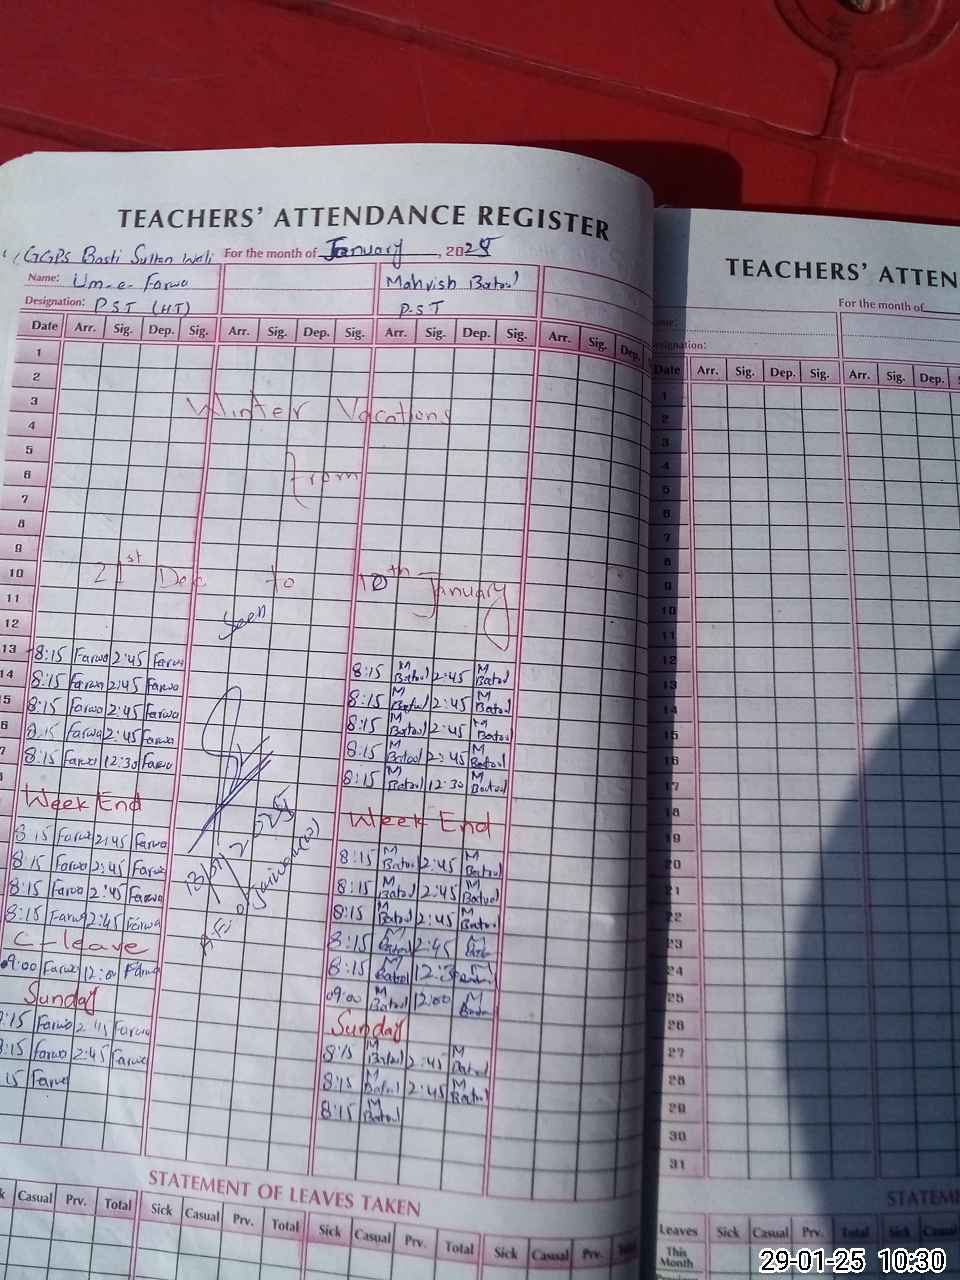 TEACHERS' ATTENDANCE REGISTER
GGPS Basti Sultan Wali For the month of January, 2025
Name: Um-e-Farwa Mahvish Batool
Designation: P.S.T (HT) P.S.T
Date Arr. Sig. Dep. Sig. Arr. Sig. Dep. Sig. Arr. Sig. Dep. Sig. Arr. Sig. Dep.
1
2
3
Winter Vacations
4
5
6
from
7
8
9
10
21st Dec to 10th January
11
12
Seen
13 8:15 Farwa 2:45 Farwa 8:15 M Batool 2:45 M Batool
14 8:15 Farwa 2:45 Farwa 8:15 M Batool 2:45 M Batool
5 8:15 Farwa 2:45 Farwa 8:15 M Batool 2:45 M Batool
6 8:15 Farwa 2:45 Farwa 8:15 M Batool 2:45 M Batool
7 8:15 Farwa 12:30 Farwa 8:15 M Batool 12:30 M Batool
Week End Week End
8:15 Farwa 2:45 Farwa 8:15 M Batool 2:45 M Batool
8:15 Farwa 2:45 Farwa 8:15 M Batool 2:45 M Batool
8:15 Farwa 2:45 Farwa 8:15 M Batool 2:45 M Batool
8:15 Farwa 2:45 Farwa 8:15 M Batool 2:45
C-leave 8:15 M Batool
09:00 Farwa 12:00 Farwa 09:00 M Batool 12:00 M
Sunday Sunday
:15 Farwa 2:45 Farwa 8:15 M Batool 2:45 M Batool
8:15 Farwa 2:45 Farwa 8:15 M Batool 2:45 M Batool
15 Farwa 8:15 M Batool
STATEMENT OF LEAVES TAKEN
k Casual Prv. Total Sick Casual Prv. Total Sick Casual Prv. Total Sick Casual Prv.
TEACHERS' ATTEN
For the month of
Date Arr. Sig. Dep. Sig. Arr. Sig. Dep.
1
2
3
4
5
6
7
8
9
10
11
12
13
14
15
16
17
18
19
20
21
22
23
24
25
26
27
28
29
30
31
STATEM
Leaves Sick Casual Prv. Total Sick
This
Month
29-01-25 10:30